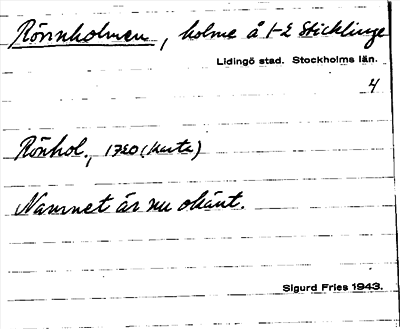 Rönnholmen, holme å 1-2 Sticklinge
Lidingö stad. Stockholms län.
4
Rönhol., 1720 (karta)
Namnet är nu okänt.
Sigurd Fries 1943.